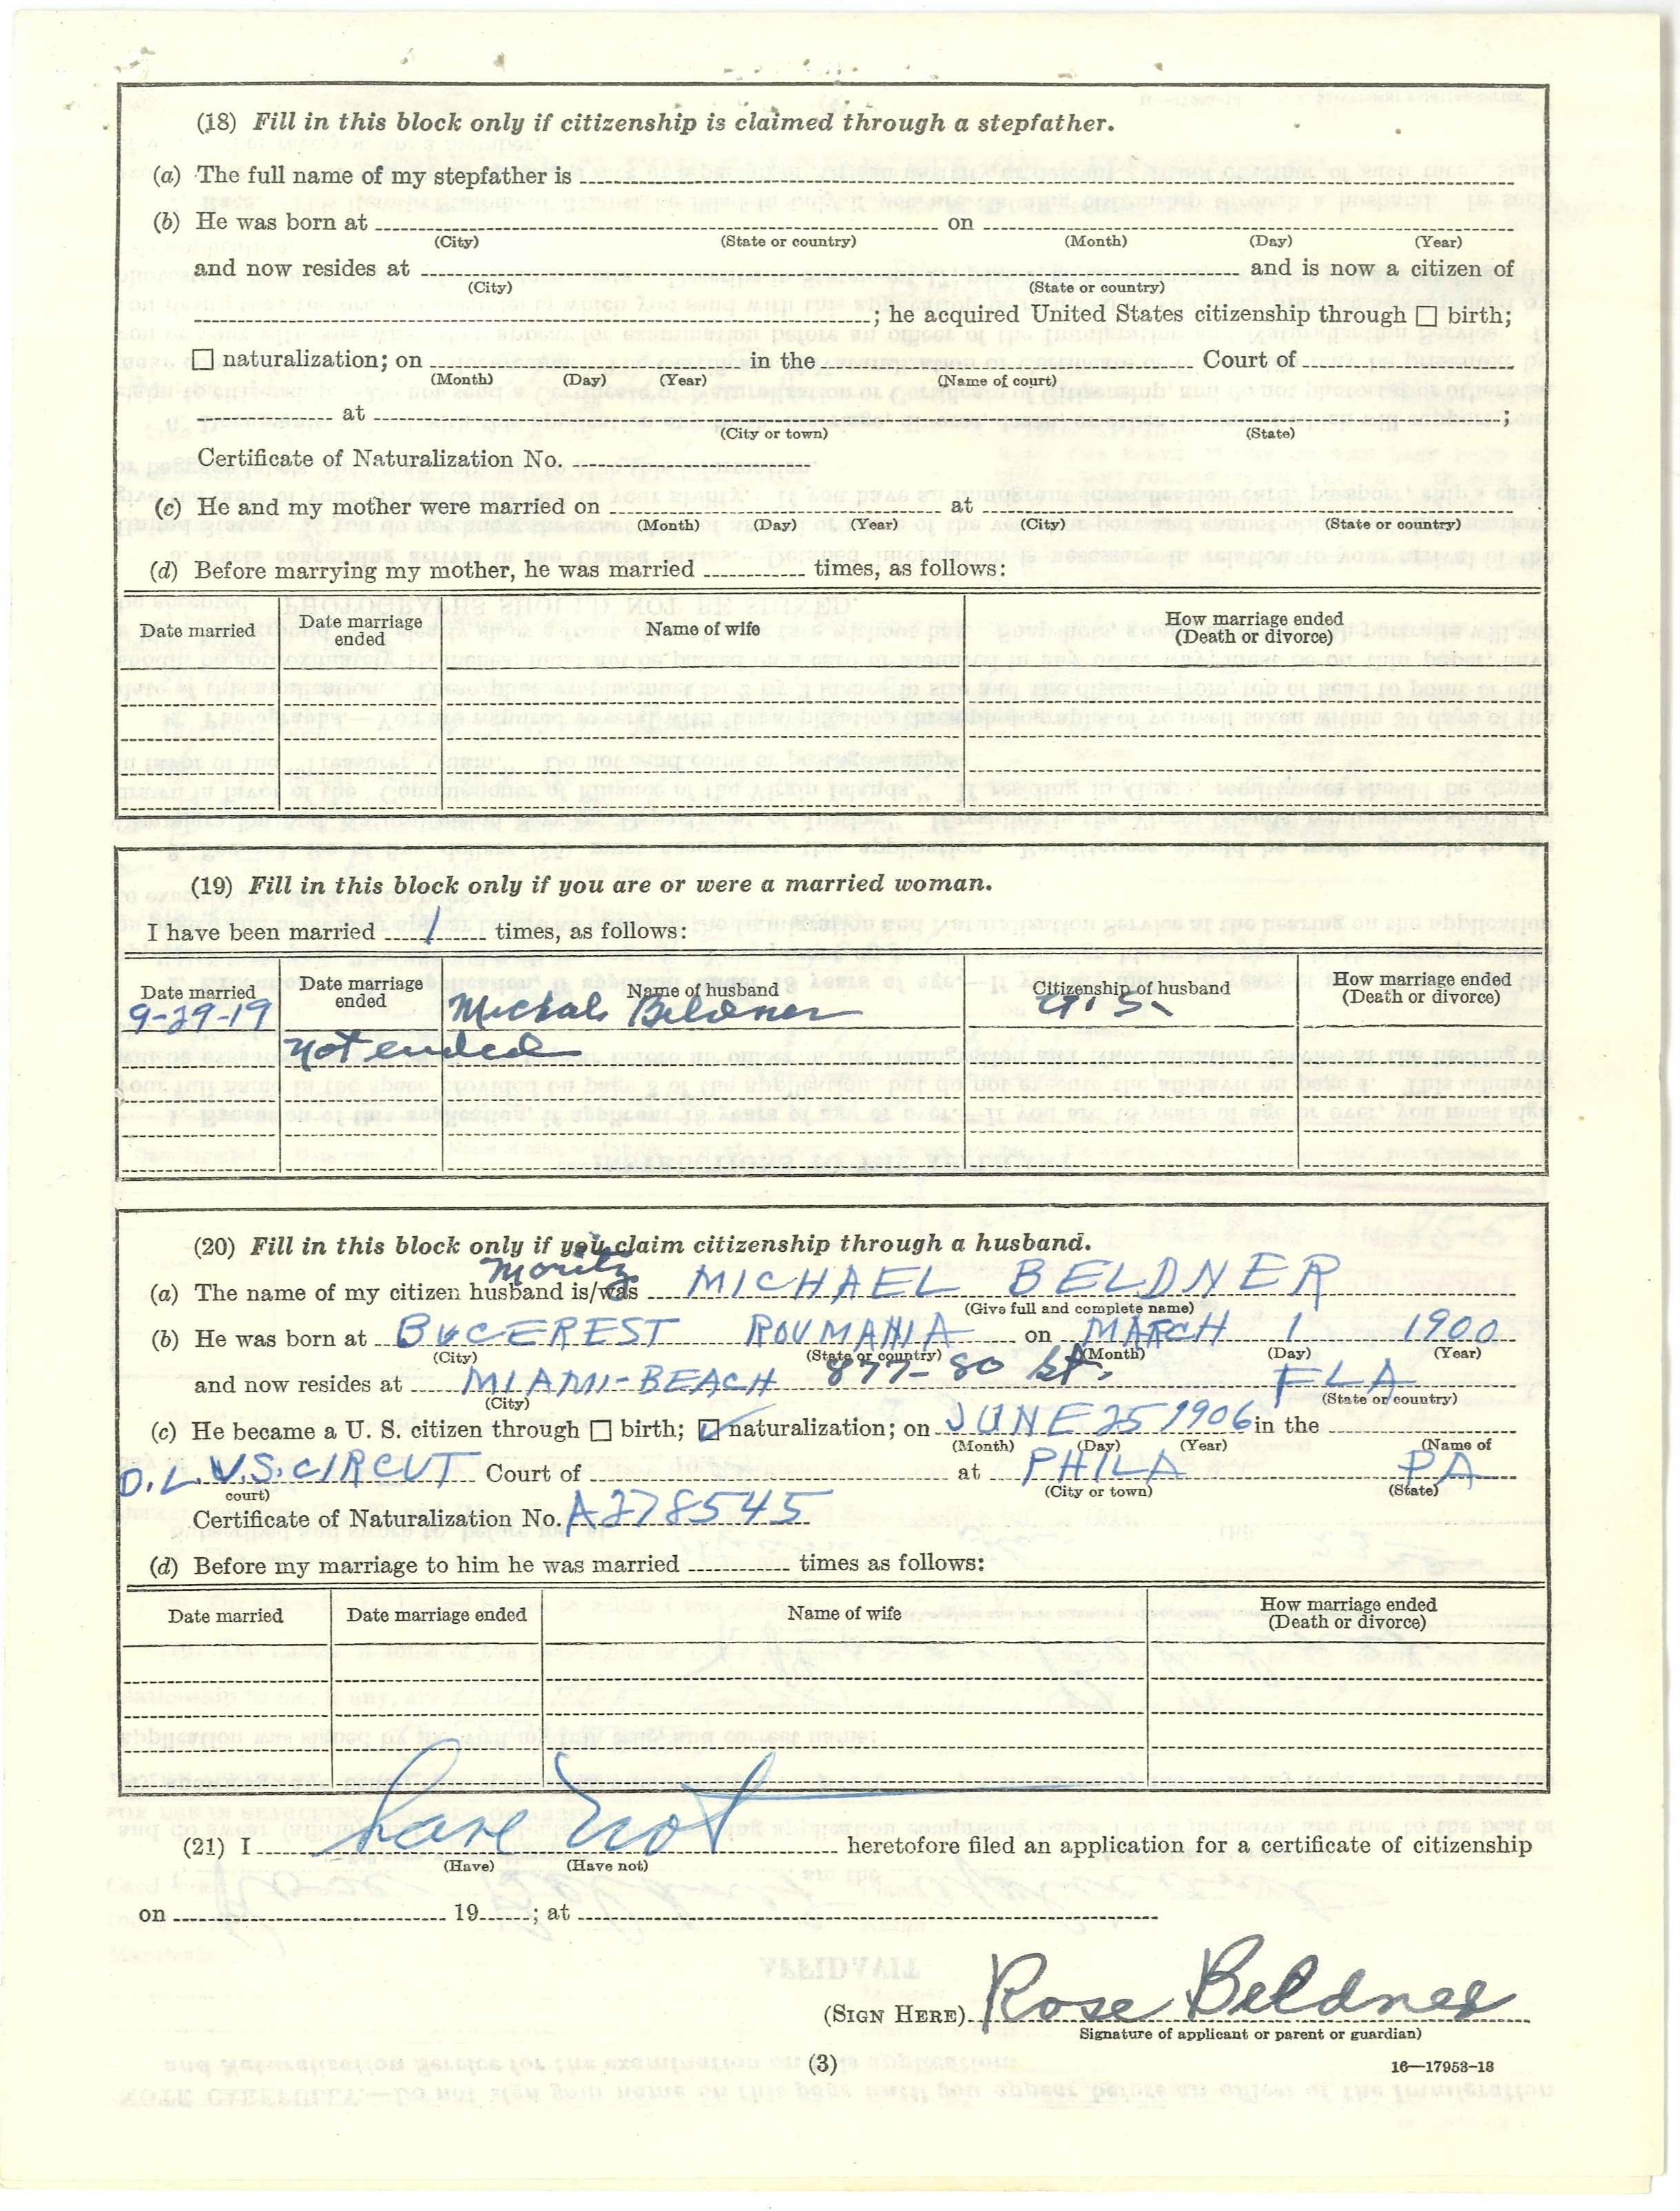 (18) Fill in this block only if citizenship is claimed through a stepfather.
(a) The full name of my stepfather is
(b) He was born at on
(City) (State or country) (Month) (Day) (Year)
and now resides at and is now a citizen of
(City) (State or country)
; he acquired United States citizenship through ☐ birth;
☐ naturalization; on in the Court of
(Month) (Day) (Year) (Name of court)
at ;
(City or town) (State)
Certificate of Naturalization No.
(c) He and my mother were married on at
(Month) (Day) (Year) (City) (State or country)
(d) Before marrying my mother, he was married times, as follows:
Date married Date marriage ended Name of wife How marriage ended (Death or divorce)
(19) Fill in this block only if you are or were a married woman.
I have been married 1 times, as follows:
Date married Date marriage ended Name of husband Citizenship of husband How marriage ended (Death or divorce)
9-29-19 Michal Beldner U.S.
not ended
(20) Fill in this block only if you claim citizenship through a husband.
Moritz
(a) The name of my citizen husband is/was MICHAEL BELDNER
(Give full and complete name)
(b) He was born at BUCEREST ROUMANIA on MARCH 1 1900
(City) (State or country) (Month) (Day) (Year)
and now resides at MIAMI-BEACH 877-80 St. FLA
(City) (State or country)
(c) He became a U. S. citizen through ☐ birth; ☑ naturalization; on JUNE 25 1906 in the
(Month) (Day) (Year) (Name of
D.L. U.S. CIRCUT Court of at PHILA PA
court) (City or town) (State)
Certificate of Naturalization No. A278545
(d) Before my marriage to him he was married times as follows:
Date married Date marriage ended Name of wife How marriage ended (Death or divorce)
(21) I have not heretofore filed an application for a certificate of citizenship
(Have) (Have not)
on 19 ; at
(SIGN HERE) Rose Beldner
Signature of applicant or parent or guardian)
(3)
16—17953-18